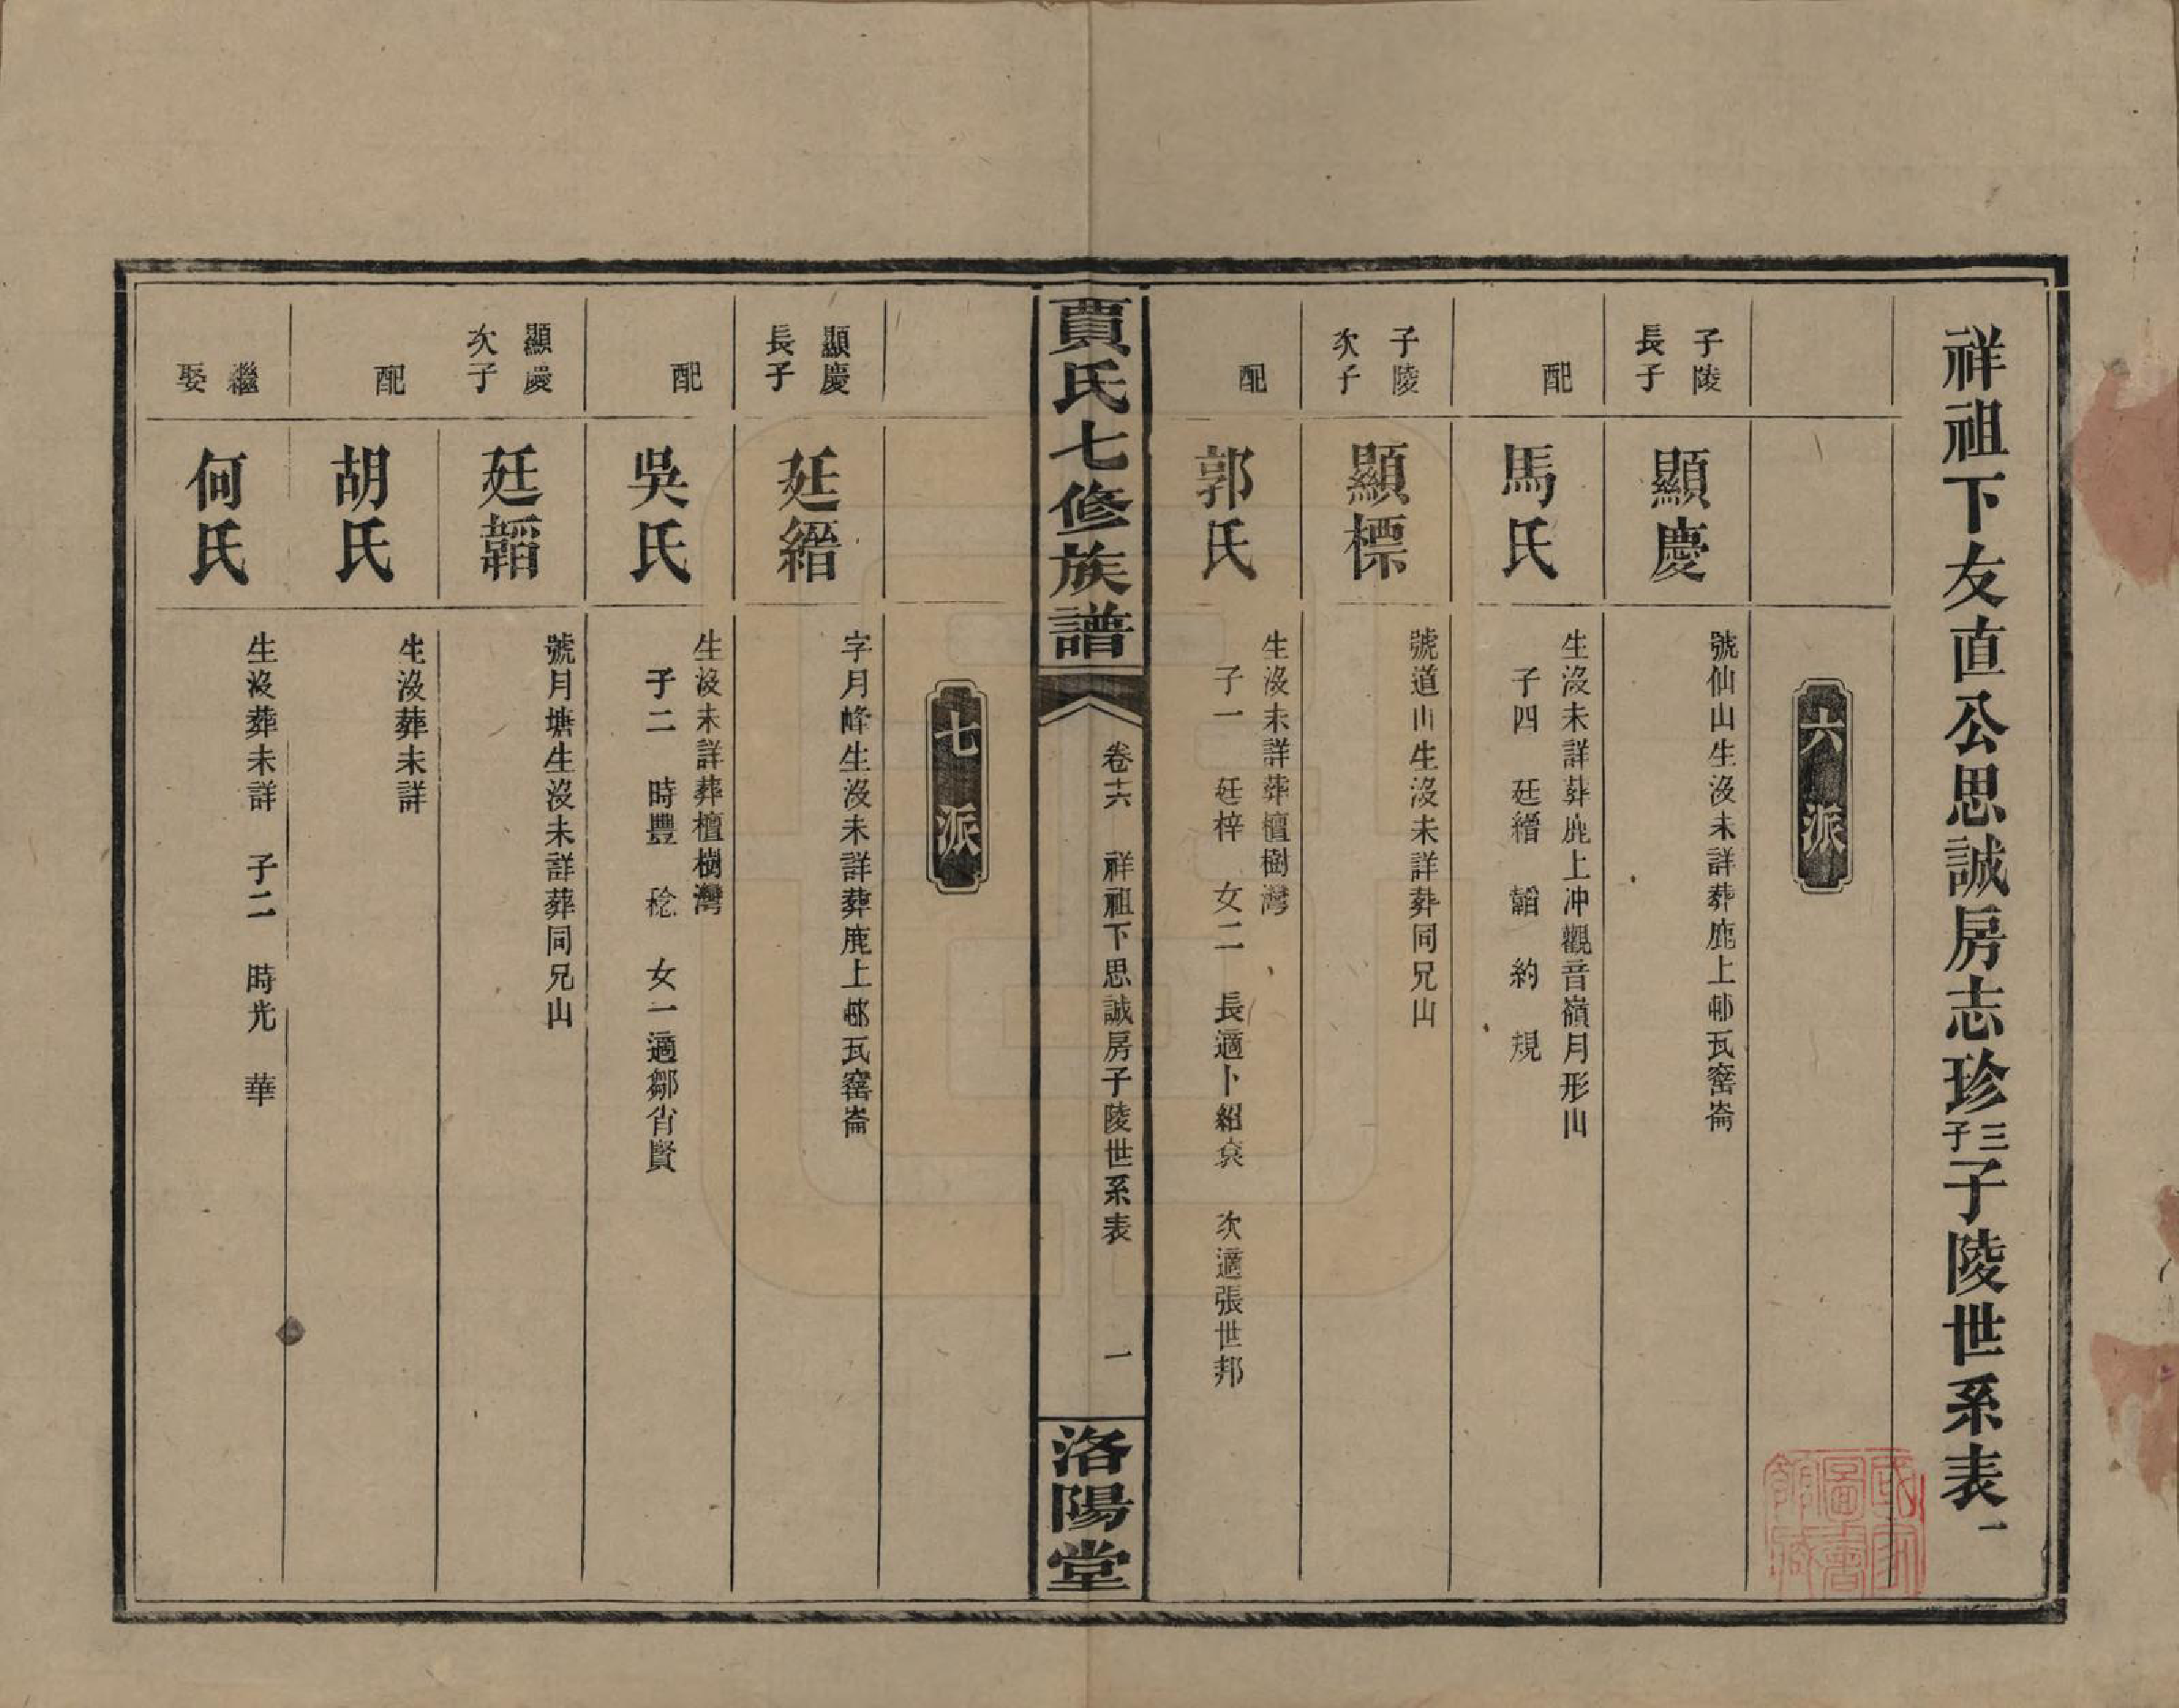 祥祖下友直公思誠房志珍三子子陵世系表一
六派
子陵長子
顯慶
號仙山生沒未詳葬鹿上邨瓦窰崙
配
馬氏
生沒未詳葬鹿上冲觀音嶺月形山
子四　廷縉　韜　約　規
子陵次子
顯標
號道山生沒未詳葬同兄山
配
郭氏
生沒未詳葬檀樹灣
子一　廷梓　女二　長適卜紹袞　次適張世邦
賈氏七修族譜
卷十六　祥祖下思誠房子陵世系表　一
洛陽堂
七派
顯慶長子
廷縉
字月峰生沒未詳葬鹿上邨瓦窰崙
配
吳氏
生沒未詳葬檀樹灣
子二　時豐　稔　女一適鄒省賢
顯慶次子
廷韜
號月塘生沒未詳葬同兄山
配
胡氏
生沒葬未詳
繼娶
何氏
生沒葬未詳　子二　時光　華
國家圖書館藏